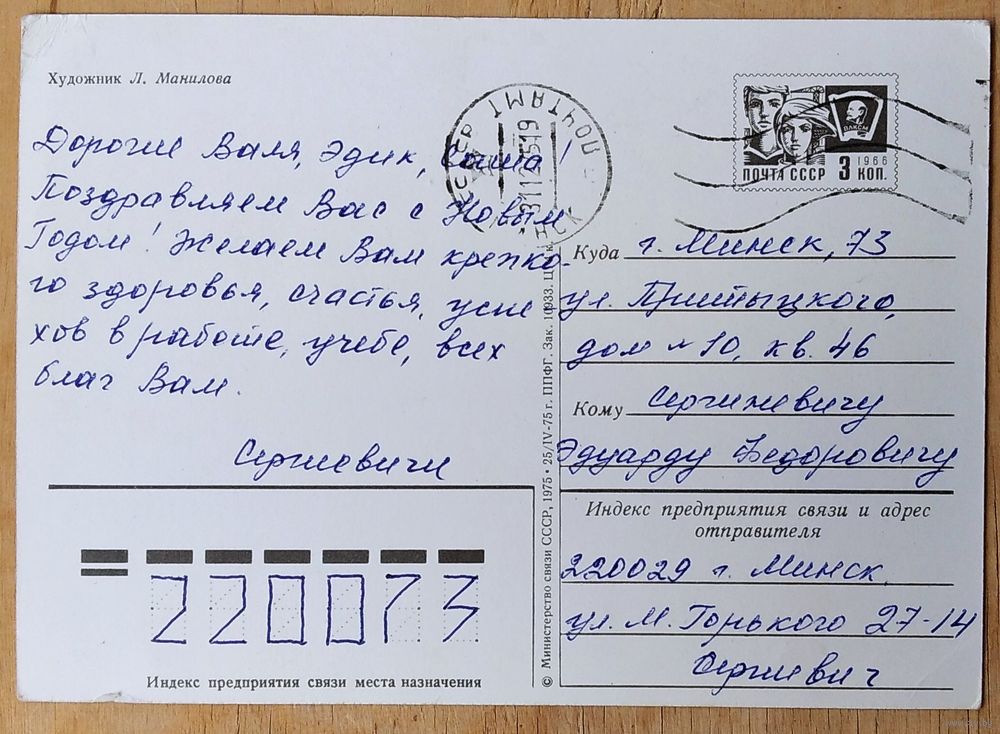 Художник Л. Манилова
Дорогие Валя, Эдик, Саша!
Поздравляем Вас с Новым
Годом! Желаем Вам крепко-
го здоровья, счастья, успе
хов в работе, учебе, всех
благ Вам.
Сергиевичи
ПОЧТАМТ
31127519
ВЛКСМ
1966
ПОЧТА СССР 3 КОП.
Куда г. Минск, 73
ул. Притыцкого,
дом № 10, кв. 46
Кому Сергиевичу
Эдуарду Федоровичу
Индекс предприятия связи и адрес
отправителя
220029 г. Минск
ул. М. Горького 27-14
Сергиевич
220073
Индекс предприятия связи места назначения
© Министерство связи СССР, 1975 • 25/IV-75 г. ППФГ. Зак. 10933. Ц.